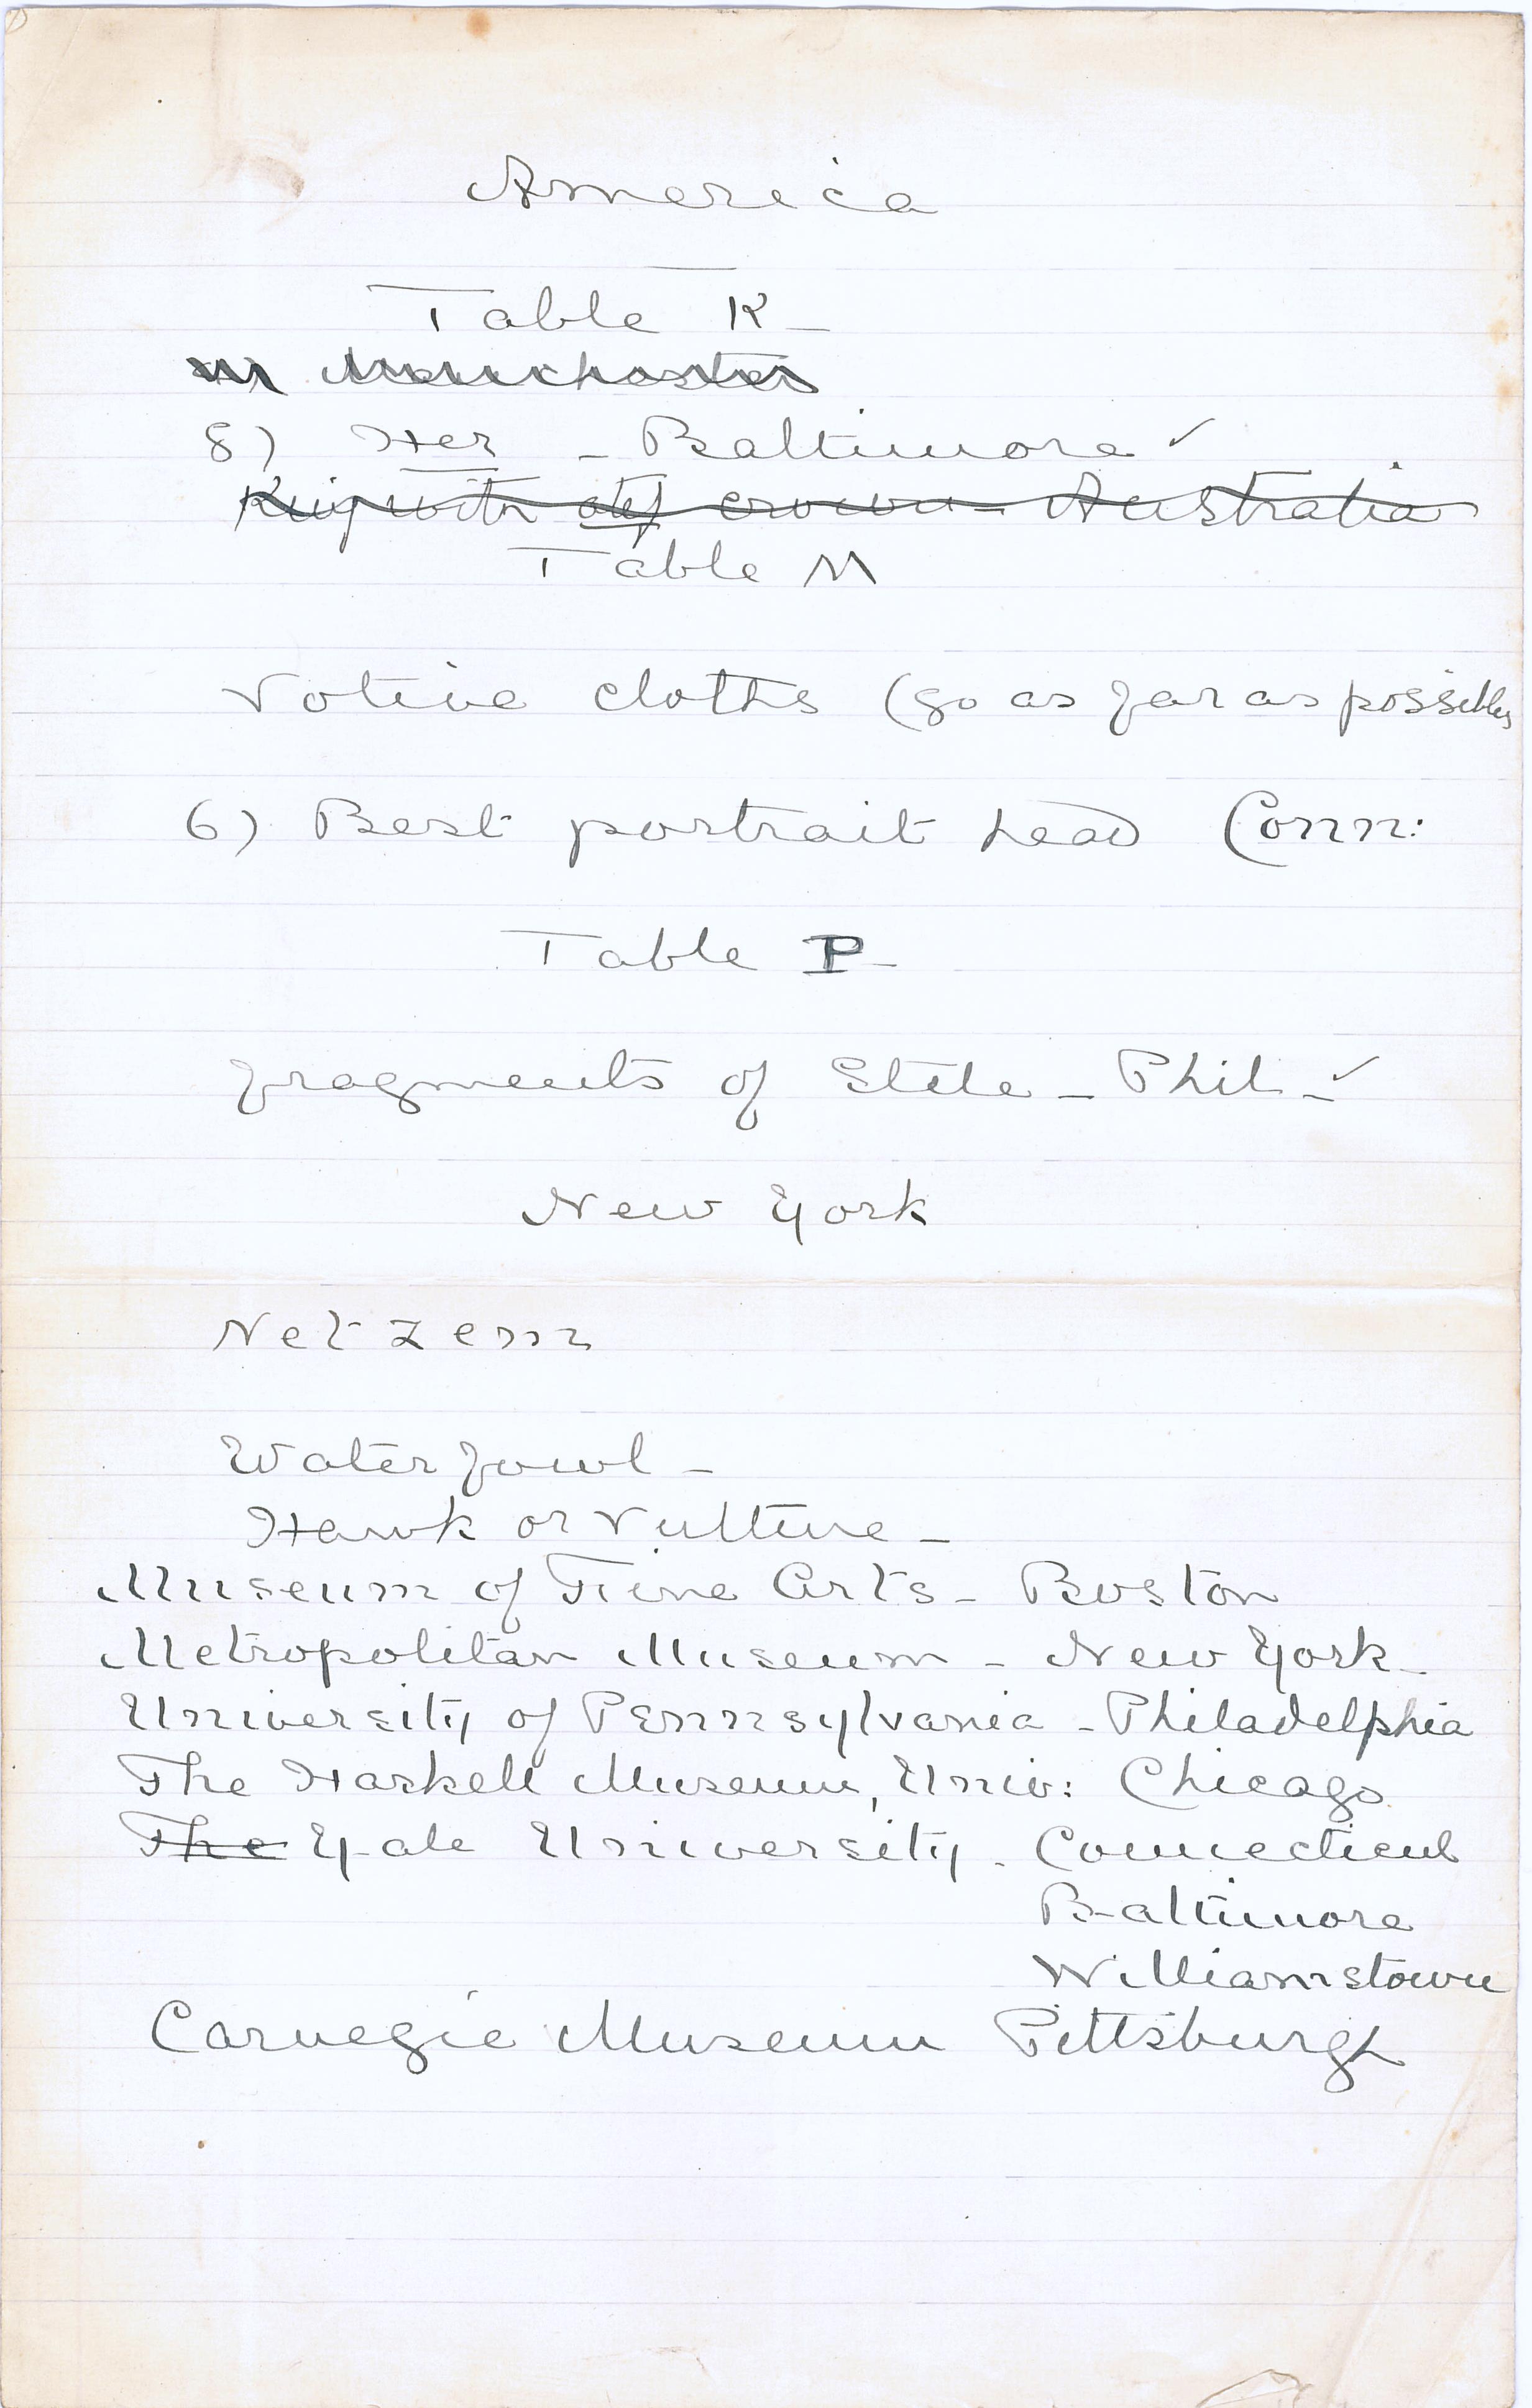 America
Table K -
Manchester
8) Her - Baltimore ✓
King with atef crown - Australia
Table M
Votive cloths (go as far as possible)
6) Best portrait head Conn:
Table P -
fragments of Stele - Phil - ✓
New York
Netzem
Water fowl -
Hawk or Vulture -
Museum of Fine Arts - Boston
Metropolitan Museum - New York -
University of Pennsylvania - Philadelphia
The Haskell Museum, Univ: Chicago
The Yale University - Connecticut
Baltimore
Williamstown
Carnegie Museum Pittsburgh